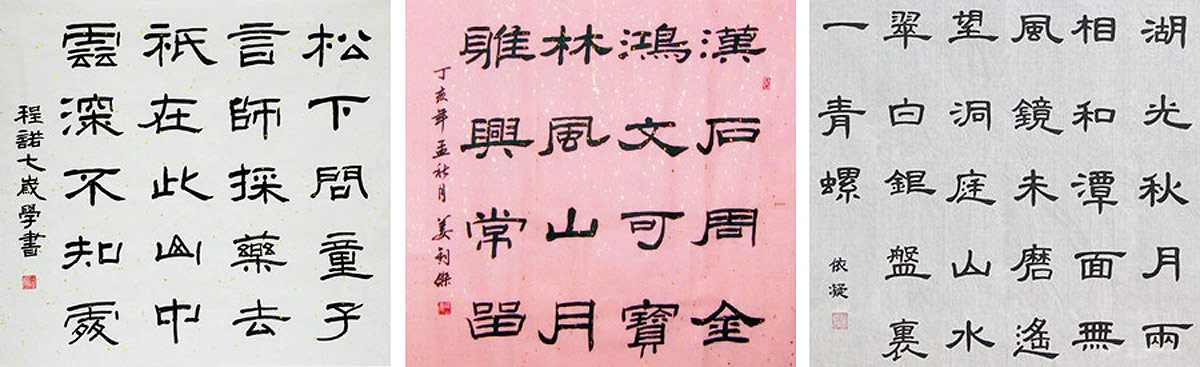 松下問童子
言師採藥去
祇在此山中
雲深不知處
程諾七歲學書
漢石周金
鴻文可寶
林風山月
雅興常留
丁亥年孟秋月 姜
湖光秋月兩
相和潭面無
風鏡未磨遙
望洞庭山水
翠白銀盤裏
一青螺
依凝